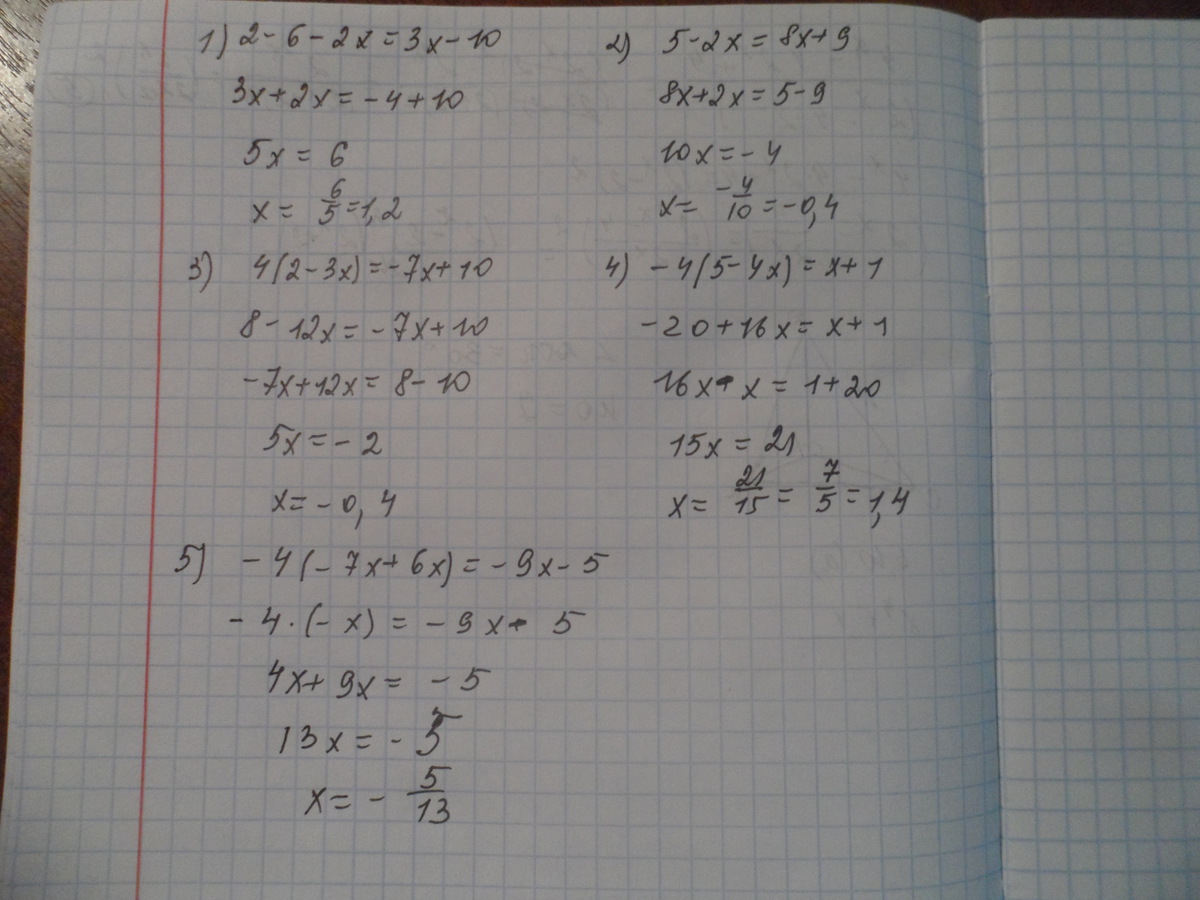 1) 2-6-2x=3x-10
3x+2x=-4+10
5x=6
x=6/5=1,2
2) 5-2x=8x+9
8x+2x=5-9
10x=-4
x=-4/10=-0,4
3) 4(2-3x)=-7x+10
8-12x=-7x+10
-7x+12x=8-10
5x=-2
x=-0,4
4) -4(5-4x)=x+1
-20+16x=x+1
16x-x=1+20
15x=21
x=21/15=7/5=1,4
5) -4(-7x+6x)=-9x-5
-4·(-x)=-9x-5
4x+9x=-5
13x=-5
x=-5/13